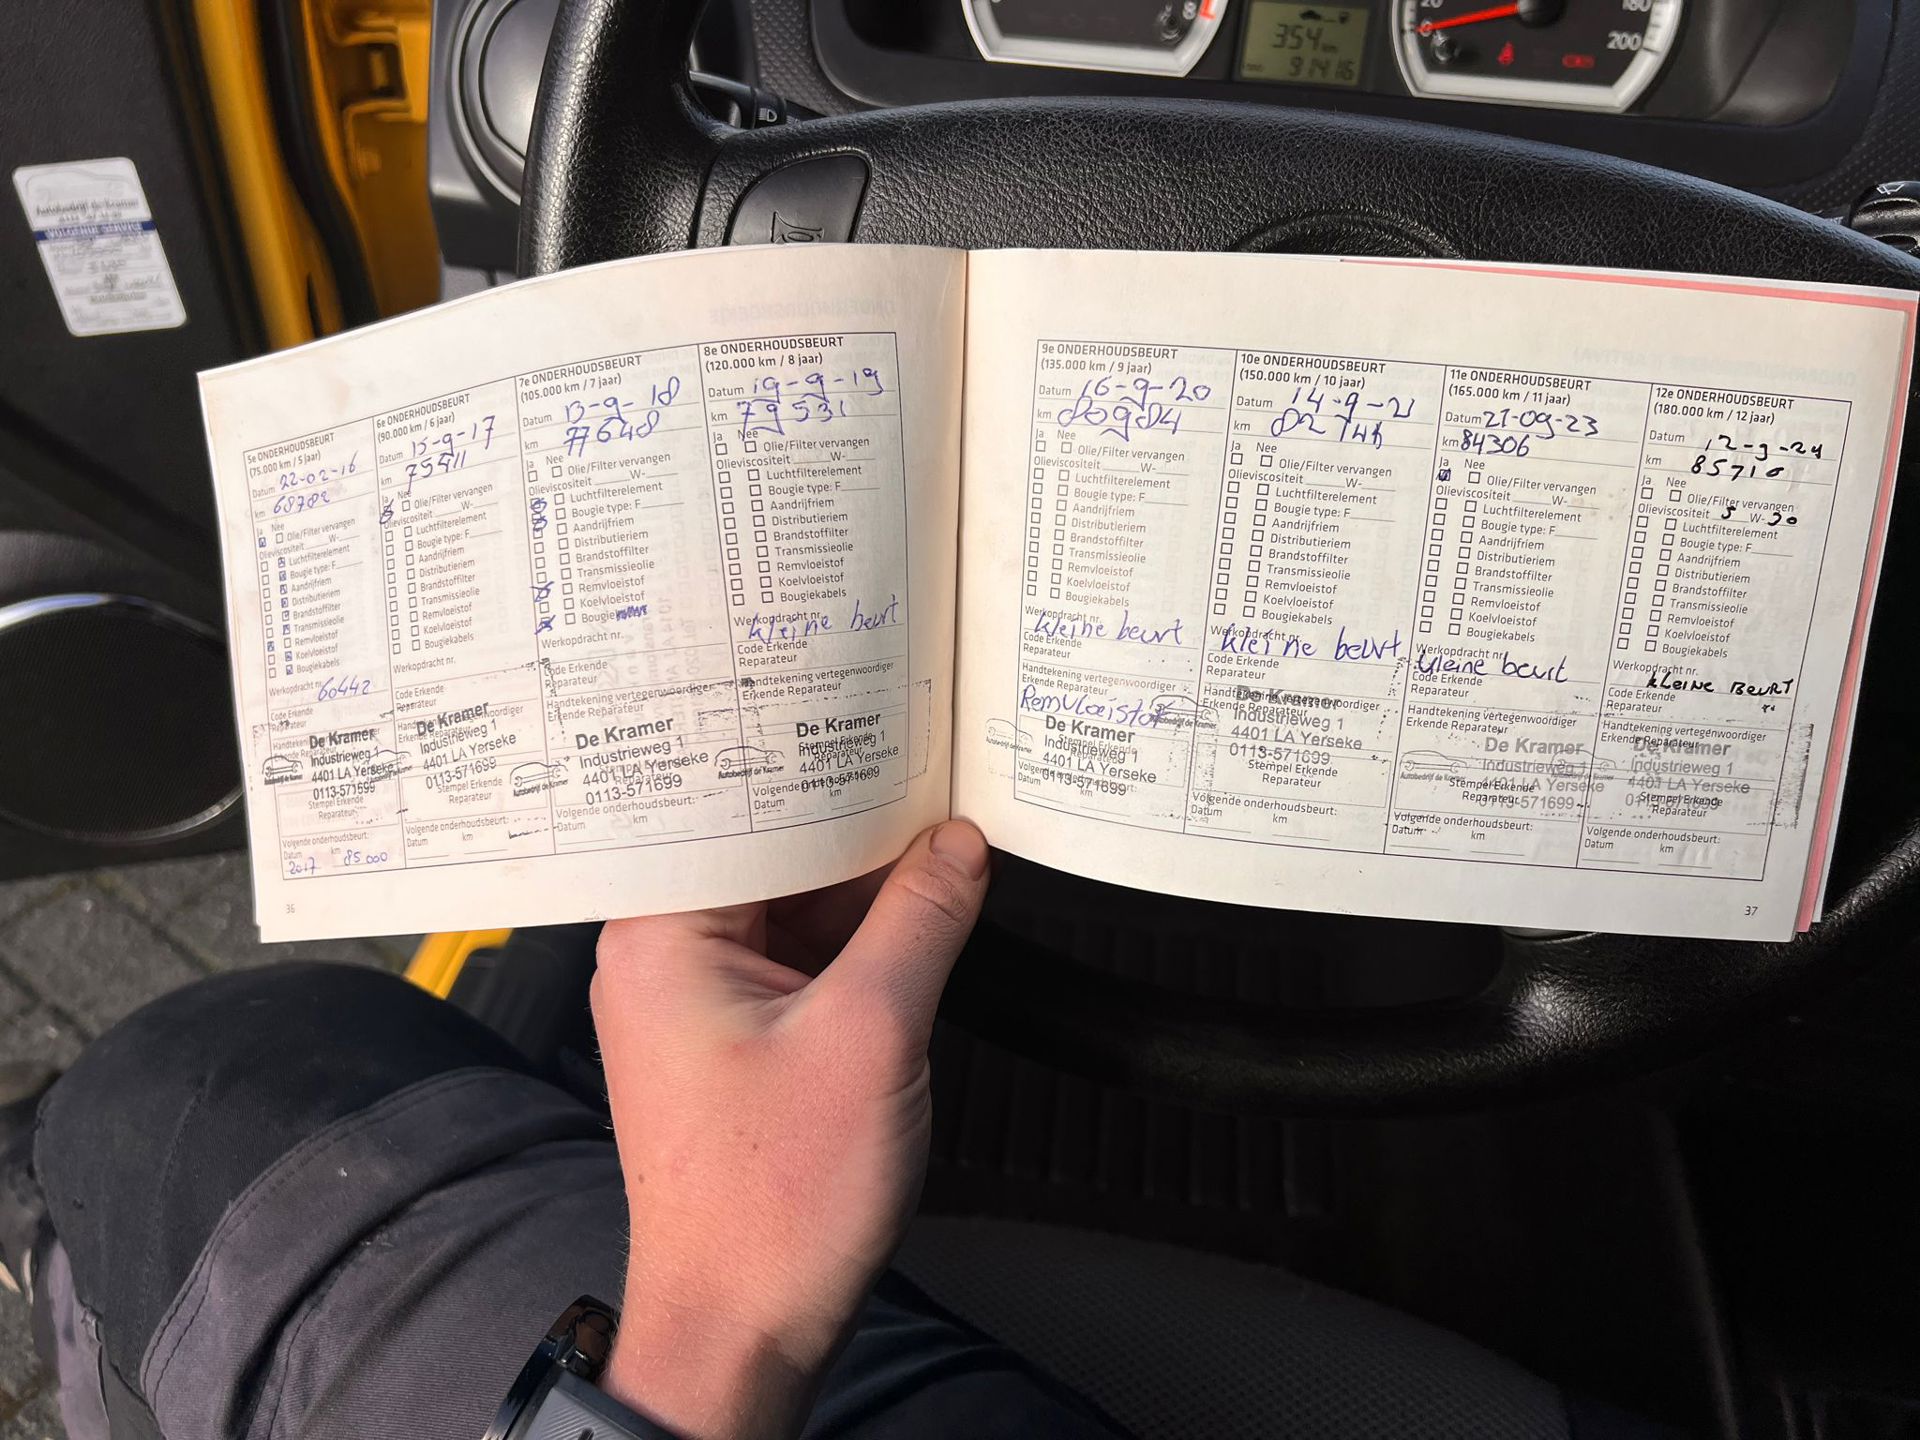 8
354 km
91416
20
0
180
200
Autobedrijf de Kramer
5e ONDERHOUDSBEURT
(75.000 km / 5 jaar)
Datum 22-02-16
km 68782
Ja Nee
Olie/Filter vervangen
Olieviscositeit W-
Luchtfilterelement
Bougie type: F
Aandrijfriem
Distributieriem
Brandstoffilter
Transmissieolie
Remvloeistof
Koelvloeistof
Bougiekabels
Werkopdracht nr. 60442
Code Erkende
Reparateur
Handtekening vertegenwoordiger
Erkende Reparateur
De Kramer
Industrieweg 1
4401 LA Yerseke
0113-571699
Autobedrijf de Kramer
Stempel Erkende
Reparateur
Volgende onderhoudsbeurt:
Datum km
2017 85.000
6e ONDERHOUDSBEURT
(90.000 km / 6 jaar)
Datum 15-9-17
km 75411
Ja Nee
Olie/Filter vervangen
Olieviscositeit W-
Luchtfilterelement
Bougie type: F
Aandrijfriem
Distributieriem
Brandstoffilter
Transmissieolie
Remvloeistof
Koelvloeistof
Bougiekabels
Werkopdracht nr.
Code Erkende
Reparateur
Handtekening vertegenwoordiger
Erkende Reparateur
De Kramer
Industrieweg 1
4401 LA Yerseke
0113-571699
Stempel Erkende
Reparateur
Volgende onderhoudsbeurt:
Datum km
7e ONDERHOUDSBEURT
(105.000 km / 7 jaar)
Datum 13-9-18
km 77648
Ja Nee
Olie/Filter vervangen
Olieviscositeit W-
Luchtfilterelement
Bougie type: F
Aandrijfriem
Distributieriem
Brandstoffilter
Transmissieolie
Remvloeistof
Koelvloeistof
Bougie
Werkopdracht nr.
Code Erkende
Reparateur
Handtekening vertegenwoordiger
Erkende Reparateur
De Kramer
Industrieweg 1
4401 LA Yerseke
0113-571699
Autobedrijf de Kramer
Volgende onderhoudsbeurt:
Datum km
8e ONDERHOUDSBEURT
(120.000 km / 8 jaar)
Datum 19-9-19
km 79531
Ja Nee
Olie/Filter vervangen
Olieviscositeit W-
Luchtfilterelement
Bougie type: F
Aandrijfriem
Distributieriem
Brandstoffilter
Transmissieolie
Remvloeistof
Koelvloeistof
Bougiekabels
Werkopdracht nr.
kleine beurt
Code Erkende
Reparateur
Handtekening vertegenwoordiger
Erkende Reparateur
De Kramer
Stempel Erkende
Industrieweg 1
4401 LA Yerseke
0113-571699
Autobedrijf de Kramer
Volgende onderhoudsbeurt:
Datum km
36
9e ONDERHOUDSBEURT
(135.000 km / 9 jaar)
Datum 16-9-20
km 80984
Ja Nee
Olie/Filter vervangen
Olieviscositeit W-
Luchtfilterelement
Bougie type: F
Aandrijfriem
Distributieriem
Brandstoffilter
Transmissieolie
Remvloeistof
Koelvloeistof
Bougiekabels
Werkopdracht nr.
kleine beurt
Code Erkende
Reparateur
Handtekening vertegenwoordiger
Erkende Reparateur
Remvloeistof
De Kramer
Industrieweg 1
4401 LA Yerseke
0113-571699
Volgende onderhoudsbeurt:
Datum km
10e ONDERHOUDSBEURT
(150.000 km / 10 jaar)
Datum 14-9-21
km
Ja Nee
Olie/Filter vervangen
Olieviscositeit W-
Luchtfilterelement
Bougie type: F
Aandrijfriem
Distributieriem
Brandstoffilter
Transmissieolie
Remvloeistof
Koelvloeistof
Bougiekabels
Werkopdracht nr.
kleine beurt
Code Erkende
Reparateur
Handtekening vertegenwoordiger
De Kramer
Industrieweg 1
4401 LA Yerseke
0113-571699
Autobedrijf de Kramer
Stempel Erkende
Reparateur
Volgende onderhoudsbeurt:
Datum km
11e ONDERHOUDSBEURT
(165.000 km / 11 jaar)
Datum 21-09-23
km 84306
Ja Nee
Olie/Filter vervangen
Olieviscositeit W-
Luchtfilterelement
Bougie type: F
Aandrijfriem
Distributieriem
Brandstoffilter
Transmissieolie
Remvloeistof
Koelvloeistof
Bougiekabels
Werkopdracht nr.
kleine beurt
Code Erkende
Reparateur
Handtekening vertegenwoordiger
Erkende Reparateur
De Kramer
Industrieweg 1
4401 LA Yerseke
0113-571699
Autobedrijf de Kramer
Stempel Erkende
Reparateur
Volgende onderhoudsbeurt:
Datum km
12e ONDERHOUDSBEURT
(180.000 km / 12 jaar)
Datum 12-9-24
km 85710
Ja Nee
Olie/Filter vervangen
Olieviscositeit 5 W-30
Luchtfilterelement
Bougie type: F
Aandrijfriem
Distributieriem
Brandstoffilter
Transmissieolie
Remvloeistof
Koelvloeistof
Bougiekabels
Werkopdracht nr.
KLEINE BEURT
Code Erkende
Reparateur
Handtekening vertegenwoordiger
Erkende Reparateur
De Kramer
Industrieweg 1
4401 LA Yerseke
Stempel Erkende
Reparateur
Volgende onderhoudsbeurt:
Datum km
37